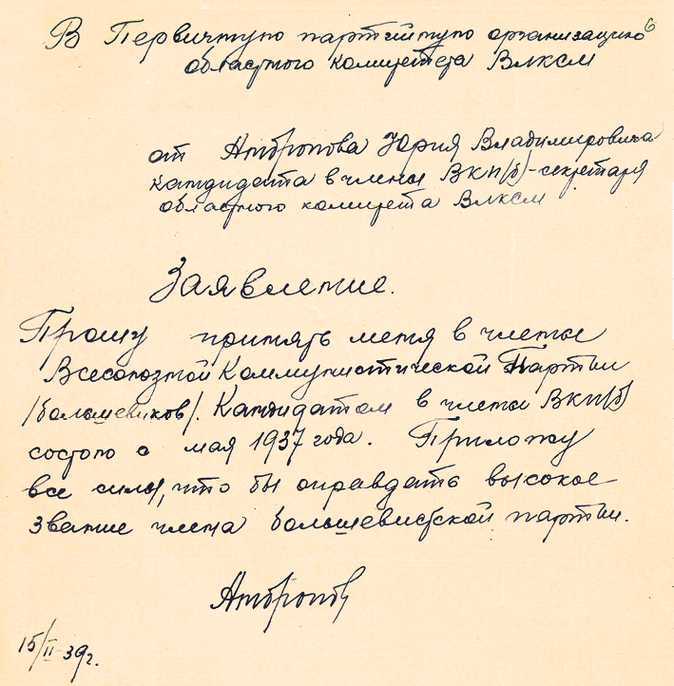 6
В Первичную партийную организацию
областного комитета ВЛКСМ
от Андропова Юрия Владимировича
кандидата в члены ВКП/б/-секретаря
областного комитета ВЛКСМ
Заявление.
Прошу принять меня в члены
Всесоюзной Коммунистической Партии
/большевиков/. Кандидатом в члены ВКП/б/
состою с мая 1937 года. Приложу
все силы, что бы оправдать высокое
звание члена большевистской партии.
Андропов
15/II-39г.